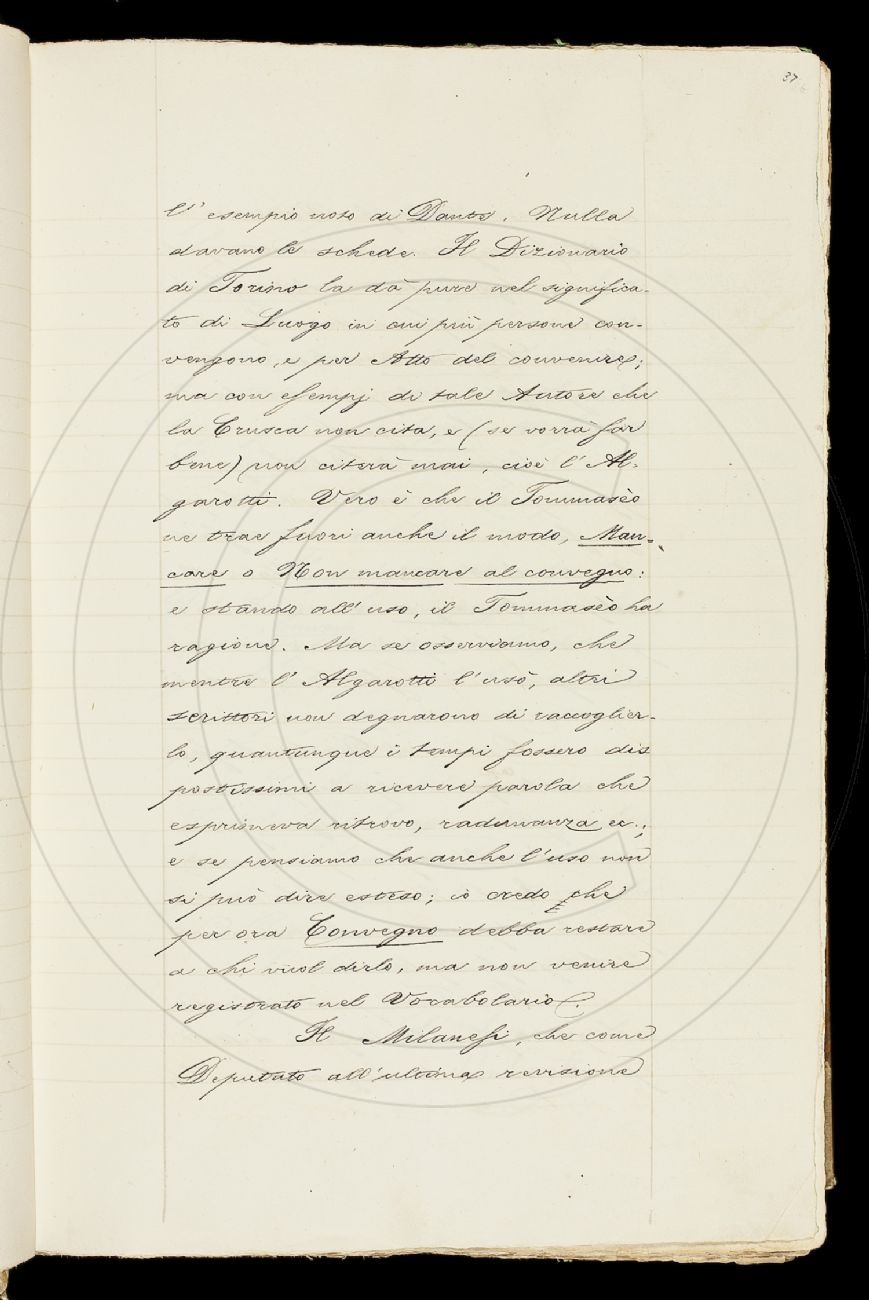 37
l' esempio noto di Dante. Nulla
davano le schede. Il Dizionario
di Torino la dà pure nel significa-
to di Luogo in cui più persone con-
vengono, e per Atto del convenire;
ma con esempj di tale Autore che
la Crusca non cita, e (se vorrà far
bene) non citerà mai, cioè l' Al-
garotti. Vero è che il Tommasèo
ne trae fuori anche il modo, Man-
care o Non mancare al convegno:
e stando all' uso, il Tommasèo ha
ragione. Ma se osserviamo, che
mentre l' Algarotti l' usò, altri
scrittori non degnarono di raccoglier-
lo, quantunque i tempi fossero dis
postissimi a ricevere parola che
esprimeva ritrovo, radunanza ec.;
e se pensiamo che anche l' uso non
si può dire esteso; io credo che
per ora Convegno debba restare
a chi vuol dirlo, ma non venire
registrato nel Vocabolario.
Il Milanesi, che come
Deputato all' ultima revisione